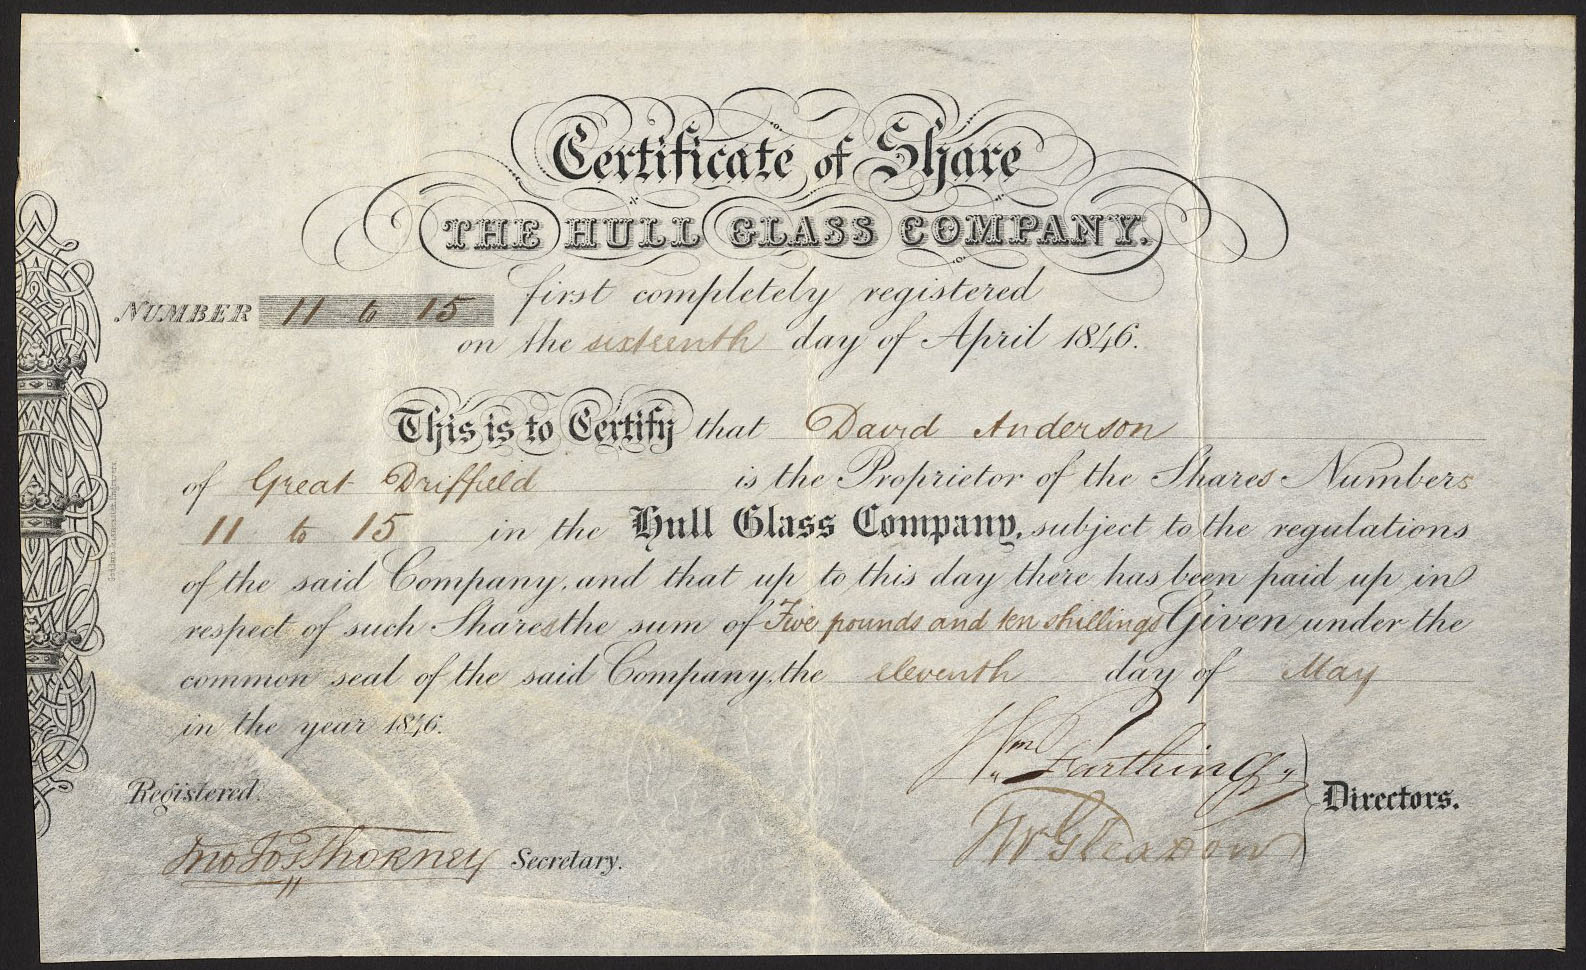 Certificate of Share
THE HULL GLASS COMPANY.
NUMBER 11 to 15 first completely registered
on the sixteenth day of April 1846.
This is to Certify that David Anderson
of Great Driffield is the Proprietor of the Shares Numbers
11 to 15 in the Hull Glass Company, subject to the regulations
of the said Company, and that up to this day there has been paid up in
respect of such Shares the sum of Five pounds and ten shillings Given under the
common seal of the said Company, the eleventh day of May
in the year 1846.
Wm Farthing
Registered. Directors.
Jno Jos Thorney Secretary. W Gleadow